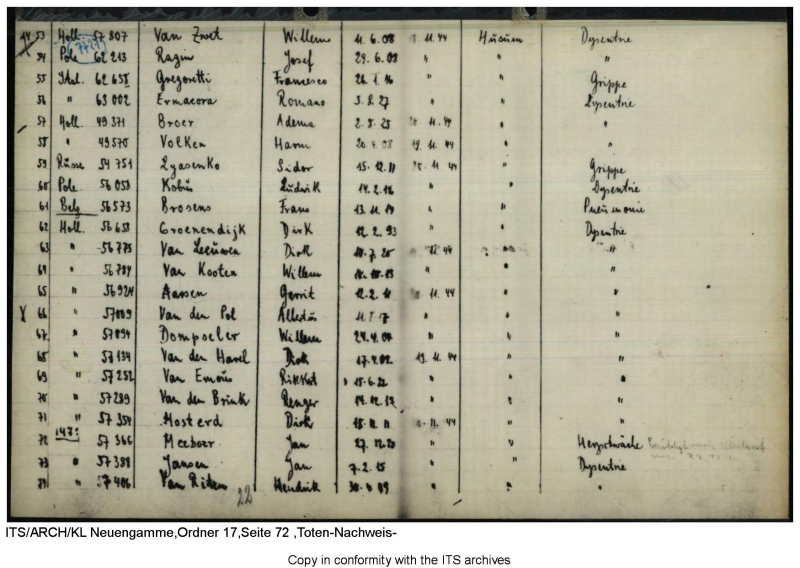 53 Holl. 57 807 Van Zwet Willem 11.6.08 11.44 Husum Dysentrie
54 Pole 62 213 Razin Josef 29.6.08 " " "
55 Ital. 62 655 Gregoretti Francesco " " Grippe
56 " 63 002 Ermacora Romano 5.8.27 " " Dysentrie
57 Holl. 49 371 Broer Adema 2.8.25 11.44 " "
58 " 49570 Volken Harm 20.4.08 19.11.44 " "
59 Russe 54 751 Lyasenko Sidor 15.12.11 20.11.44 " Grippe
60 Pole 56 053 Ludwik 14.2.16 " " Dysentrie
61 Belg 56 573 Brosens Frans 13.11.19 " " Pneumonie
62 Holl. 56 653 Groenendijk Dirk 12.2.93 " " Dysentrie
63 " 56 775 Van Leeuwen Dirk 18.7.20 11.44 " "
64 " 56 784 Van Kooten Willem " " "
65 " 56 924 Aassen Gerrit 11.44 " "
X 66 " 57009 Van den Pol " " "
67 " 57094 Dompseler Willem 24.4.07 " " "
68 " 57 134 Van den Havel Dirk 17.4.02 19.11.44 " "
69 " 57 252 Van 15.6.22 " " "
70 " 57 289 Van den Brink Renger 14.12.12 " " "
71 " 57 354 Mosterd Dirk 15.12.11 11.44 " "
72 57 366 Meeboer Jan 27.12.20 " " Herzschwäche
73 " 57 388 Jansen Jan 7.2.15 " " Dysentrie
74 " 57 406 Van Hendrik " " "
22
ITS/ARCH/KL Neuengamme,Ordner 17,Seite 72 ,Toten-Nachweis-
Copy in conformity with the ITS archives